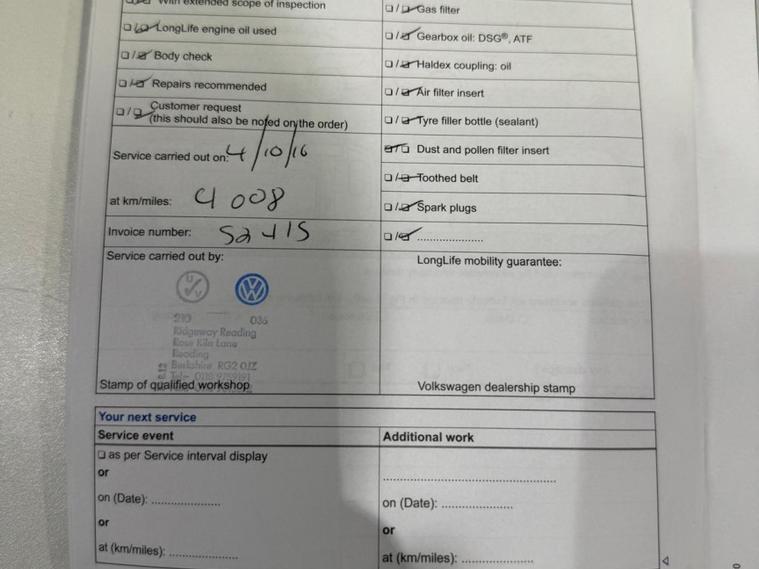 With extended scope of inspection
LongLife engine oil used
Body check
Repairs recommended
Customer request
(this should also be noted on the order)
Service carried out on: 4/10/16
at km/miles: 4 008
Invoice number:
Service carried out by:
910 036
Ridgeway Reading
Rose Kiln Lane
Reading
Berkshire RG2 0JZ
Stamp of qualified workshop
Gas filter
Gearbox oil: DSG®, ATF
Haldex coupling: oil
Air filter insert
Tyre filler bottle (sealant)
Dust and pollen filter insert
Toothed belt
Spark plugs
....................
LongLife mobility guarantee:
Volkswagen dealership stamp
Your next service
Service event
as per Service interval display
or
on (Date): ....................
or
at (km/miles): ....................
Additional work
..................................................
on (Date): ....................
or
at (km/miles): ....................